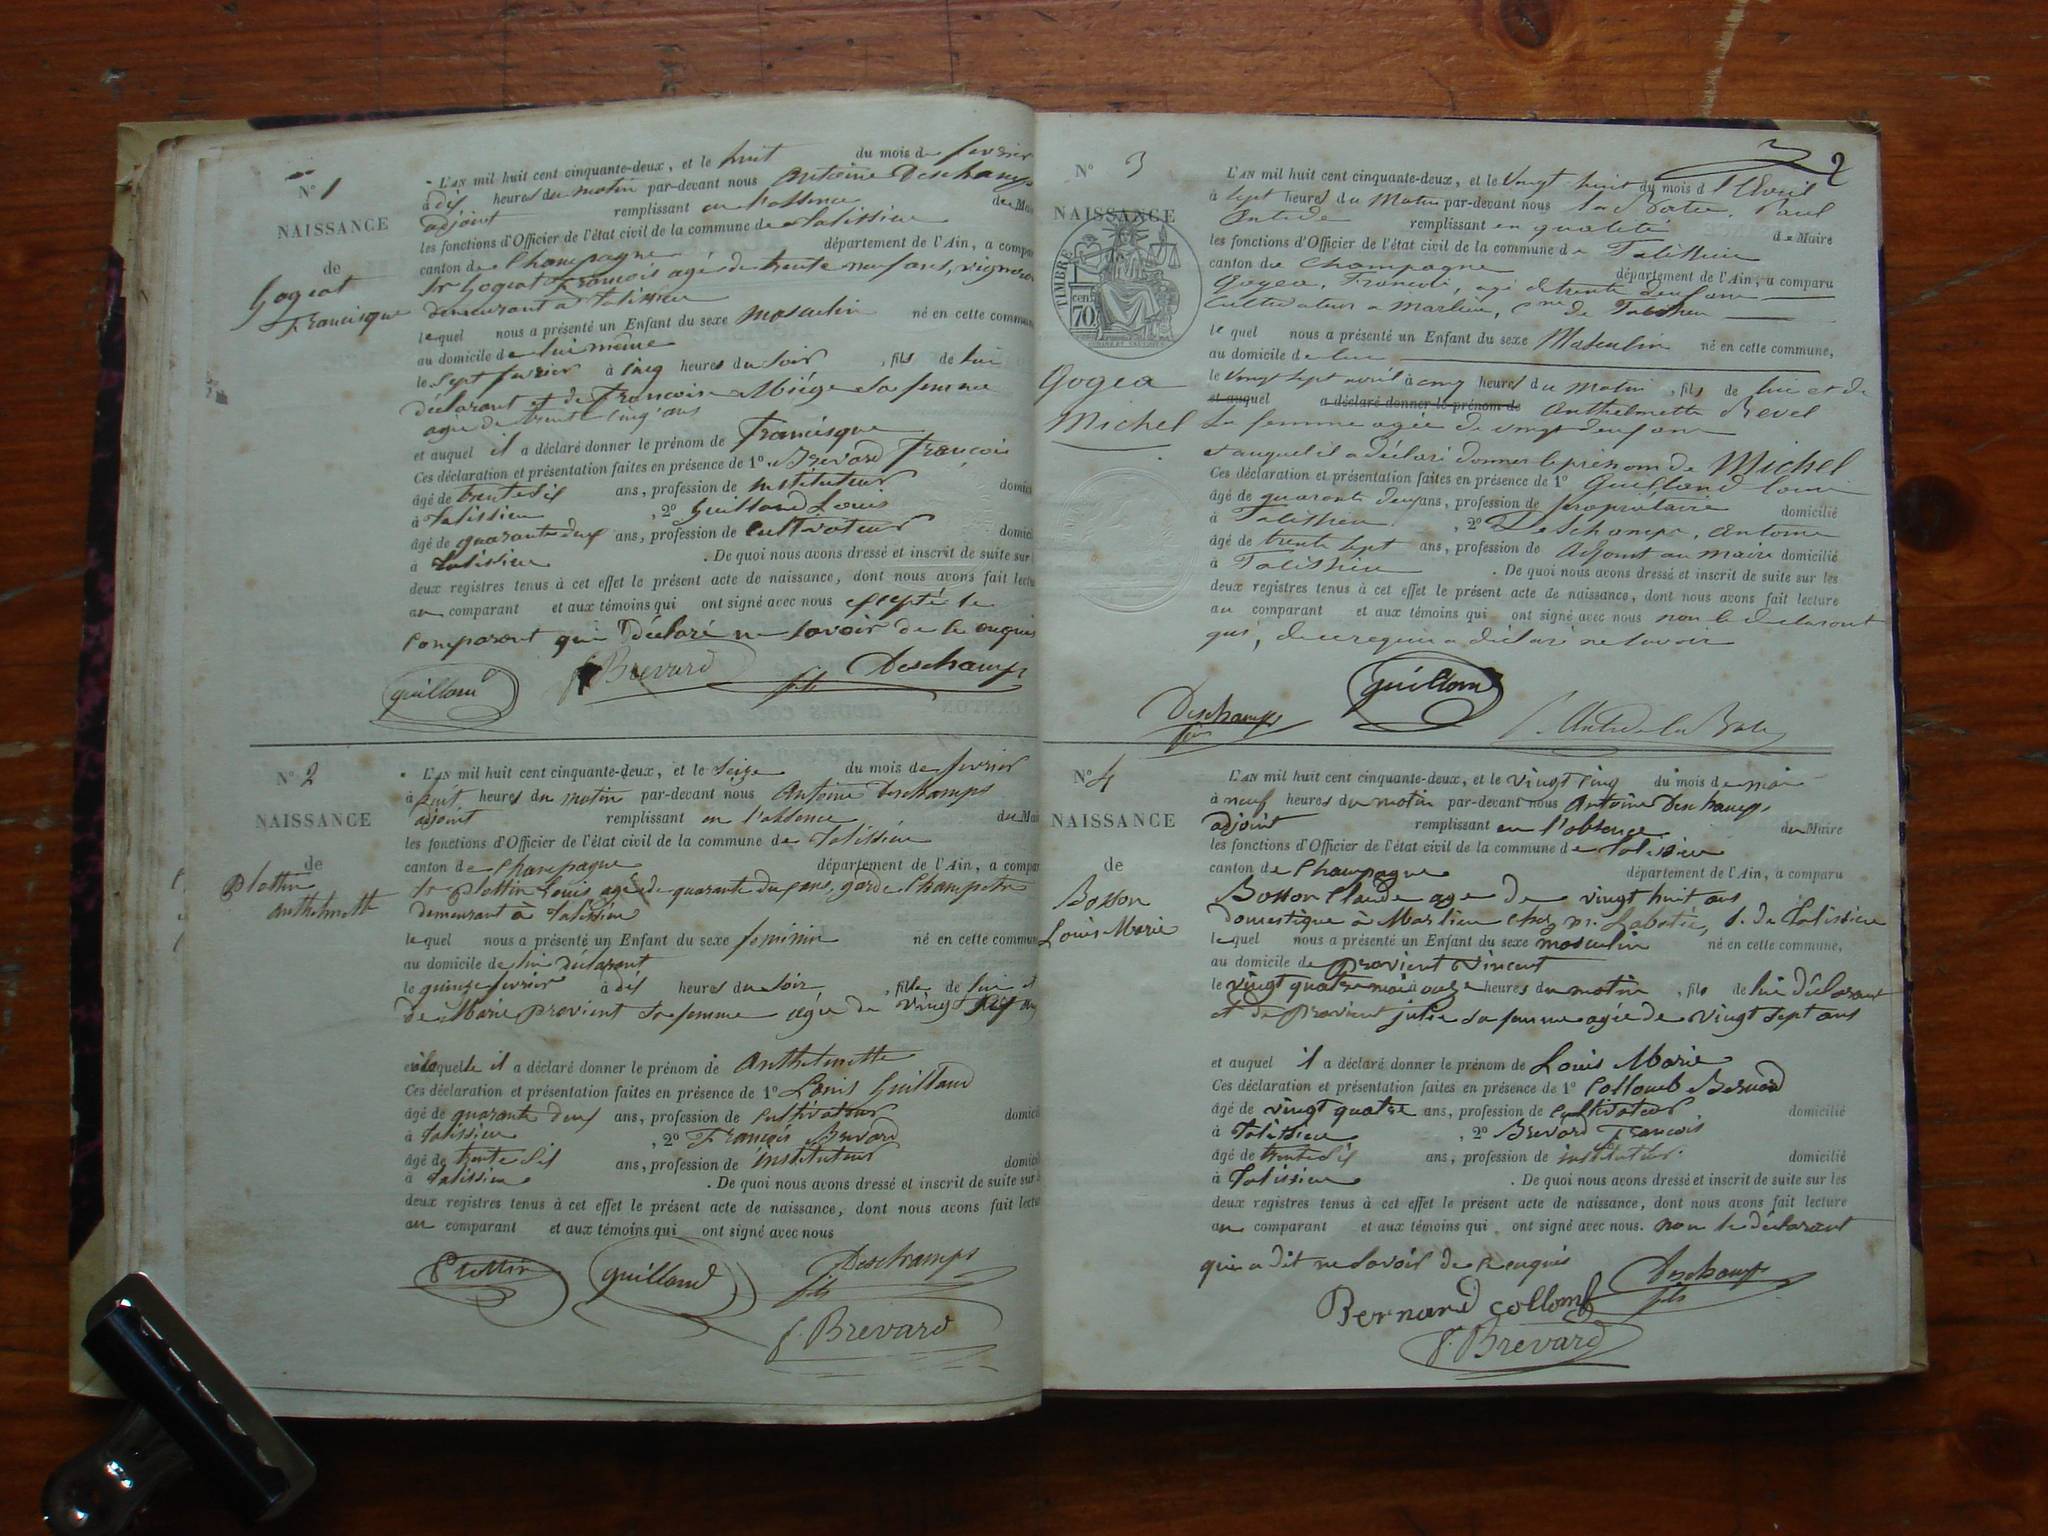 N° 1
NAISSANCE
de
Gogeat
Francisque
L'AN mil huit cent cinquante-deux, et le huit du mois de fevrier
à dix heures du matin par-devant nous Antoine Deschamps
adjoint remplissant en l'absence du Mai
les fonctions d'Officier de l'état civil de la commune de talissieu
canton de Champagne département de l'Ain, a compa
Sr Gogeat François agé de trente neuf ans, vigneron
demeurant à talissieu
lequel nous a présenté un Enfant du sexe masculin né en cette commun
au domicile de lui même
le sept fevrier à cinq heures du soir, fils de lui
déclarant et de Françoise Miége sa femme
agée de trente cinq ans
et auquel il a déclaré donner le prénom de Francisque
Ces déclaration et présentation faites en présence de 1° Brevard François
âgé de trente six ans, profession de instituteur domici
à talissieu, 2° Guilland Louis
âgé de quarante deux ans, profession de cultivateur domici
à talissieu. De quoi nous avons dressé et inscrit de suite sur
deux registres tenus à cet effet le présent acte de naissance, dont nous avons fait lectu
au comparant et aux témoins qui ont signé avec nous excepté le
comparant qui a déclaré ne savoir de ce enquis
guilland f. Brevard Deschamps fils
N° 2
NAISSANCE
de
Plottin
anthelmette
L'AN mil huit cent cinquante-deux, et le seize du mois de fevrier
à huit heures du matin par-devant nous Antoine Deschamps
adjoint remplissant en l'absence du Mai
les fonctions d'Officier de l'état civil de la commune de talissieu
canton de Champagne département de l'Ain, a compar
Sr Plottin Louis agé de quarante deux ans, garde Champetre
demeurant à talissieu
lequel nous a présenté un Enfant du sexe feminin né en cette commun
au domicile de lui déclarant
le quinze fevrier à dix heures du soir, fille de lui et
de Marie provient sa femme agée de vingt ans
laquelle il a déclaré donner le prénom de Anthelmette
Ces déclaration et présentation faites en présence de 1° Louis Guilland
âgé de quarante deux ans, profession de cultivateur domicil
à talissieu, 2° François Brevard
âgé de trente six ans, profession de instituteur domici
à talissieu. De quoi nous avons dressé et inscrit de suite sur
deux registres tenus à cet effet le présent acte de naissance, dont nous avons fait lectu
au comparant et aux témoins qui ont signé avec nous
Plottin guilland Deschamps fils
f. Brevard
2
N° 3
NAISSANCE
TIMBRE
70 cen
Gogea
Michel
L'AN mil huit cent cinquante-deux, et le vingt huit du mois d'Avril
à sept heures du Matin par-devant nous la Batie, Paul
Antide remplissant en qualité de Maire
les fonctions d'Officier de l'état civil de la commune de Talissieu
canton de Champagne département de l'Ain, a comparu
Gogea, François, agé de trente deux ans
Cultivateur a Marlieu, cne de Talissieu
lequel nous a présenté un Enfant du sexe Masculin né en cette commune,
au domicile de lui
le vingt sept avril à cinq heures du matin, fils de lui et de
et auquel a déclaré donner le prénom de Anthelmette Revel
sa femme agée de vingt deux ans
et auquel il a déclaré donner le prénom de Michel
Ces déclaration et présentation faites en présence de 1° Guilland louis
âgé de quarante deux ans, profession de propriétaire domicilié
à Talissieu, 2° Deschamps, Antoine
âgé de trente sept ans, profession de adjoint au maire domicilié
à Talissieu. De quoi nous avons dressé et inscrit de suite sur les
deux registres tenus à cet effet le présent acte de naissance, dont nous avons fait lecture
au comparant et aux témoins qui ont signé avec nous non le declarant
qui, de ce requis a déclaré ne savoir
Deschamps fils guilland P. Antide la Batie
N° 4
NAISSANCE
de
Bosson
Louis Marie
L'AN mil huit cent cinquante-deux, et le vingt cinq du mois de mai
à neuf heures du matin par-devant nous Antoine Deschamps
adjoint remplissant en l'absence du Maire
les fonctions d'Officier de l'état civil de la commune de talissieu
canton de Champagne département de l'Ain, a comparu
Bosson Claude age de vingt huit ans
domestique à Marlieu chez mr. Labatie, de talissieu
lequel nous a présenté un Enfant du sexe masculin né en cette commune,
au domicile de provient Vincent
le vingt quatre mai à onze heures du matin, fils de lui déclarant
et de provient julie sa femme agée de vingt sept ans
et auquel il a déclaré donner le prénom de Louis Marie
Ces déclaration et présentation faites en présence de 1° Collomb Bernard
âgé de vingt quatre ans, profession de cultivateur domicilié
à talissieu, 2° Brevard François
âgé de trente six ans, profession de instituteur domicilié
à talissieu. De quoi nous avons dressé et inscrit de suite sur les
deux registres tenus à cet effet le présent acte de naissance, dont nous avons fait lecture
au comparant et aux témoins qui ont signé avec nous. non le déclarant
qui a dit ne savoir de ce enquis
Deschamps fils
Bernard Collomb
f. Brevard